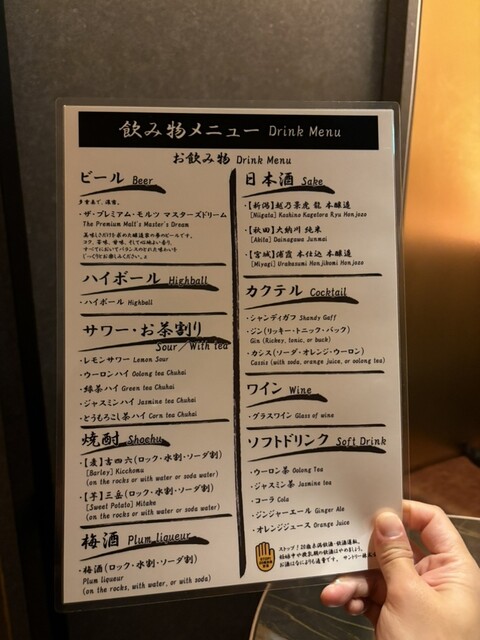 飲み物メニュー Drink Menu
お飲み物 Drink Menu
ビール Beer
多重奏で、濃密。
・ザ・プレミアム・モルツ マスターズドリーム
The Premium Malt's Master's Dream
美味しさだけを求めた醸造家の夢のビールです。
コク、苦味、甘味、そして心地よい香り。
すべてにおいてバランスのとれた味わいを
じ〜っくりとお楽しみください。
ハイボール Highball
・ハイボール Highball
サワー・お茶割り
Sour／With tea
・レモンサワー Lemon Sour
・ウーロンハイ Oolong tea Chuhai
・緑茶ハイ Green tea Chuhai
・ジャスミンハイ Jasmine tea Chuhai
・とうもろこし茶ハイ Corn tea Chuhai
焼酎 Shochu
・【麦】吉四六(ロック・水割・ソーダ割)
[Barley] Kicchomu
(on the rocks or with water or soda water)
・【芋】三岳(ロック・水割・ソーダ割)
[Sweet Potato] Mitake
(on the rocks or with water or soda water)
梅酒 Plum liqueur
・梅酒(ロック・水割・ソーダ割)
Plum liqueur
(on the rocks, with water, or with soda)
日本酒 Sake
・【新潟】越乃景虎 龍 本醸造
[Niigata] Koshino Kagetora Ryu Honjozo
・【秋田】大納川 純米
[Akita] Dainagawa Junmai
・【宮城】浦霞 本仕込 本醸造
[Miyagi] Urakasumi Honjikomi Honjozo
カクテル Cocktail
・シャンディガフ Shandy Gaff
・ジン(リッキー・トニック・バック)
Gin (Rickey, tonic, or buck)
・カシス(ソーダ・オレンジ・ウーロン)
Cassis (with soda, orange juice, or oolong tea)
ワイン Wine
・グラスワイン Glass of wine
ソフトドリンク Soft Drink
・ウーロン茶 Oolong Tea
・ジャスミン茶 Jasmine tea
・コーラ Cola
・ジンジャーエール Ginger Ale
・オレンジジュース Orange Juice
ストップ！20歳未満飲酒・飲酒運転。
妊娠中や授乳期の飲酒はやめましょう。
お酒はなによりも適量です。 サントリー